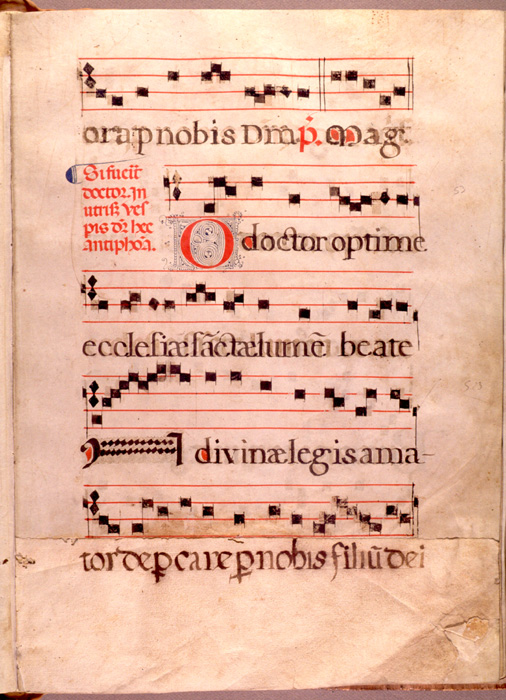 ora p nobis Dm̄ p̄. Magt̄.
Si fueit̄
doctor. In
utrisq̨ ves
pis dr̄ hec
antiphōa.
O doctor optime
ecclesiæ sāctæ lumē beate
divinæ legis ama-
tor depcare p nobis filiū dei